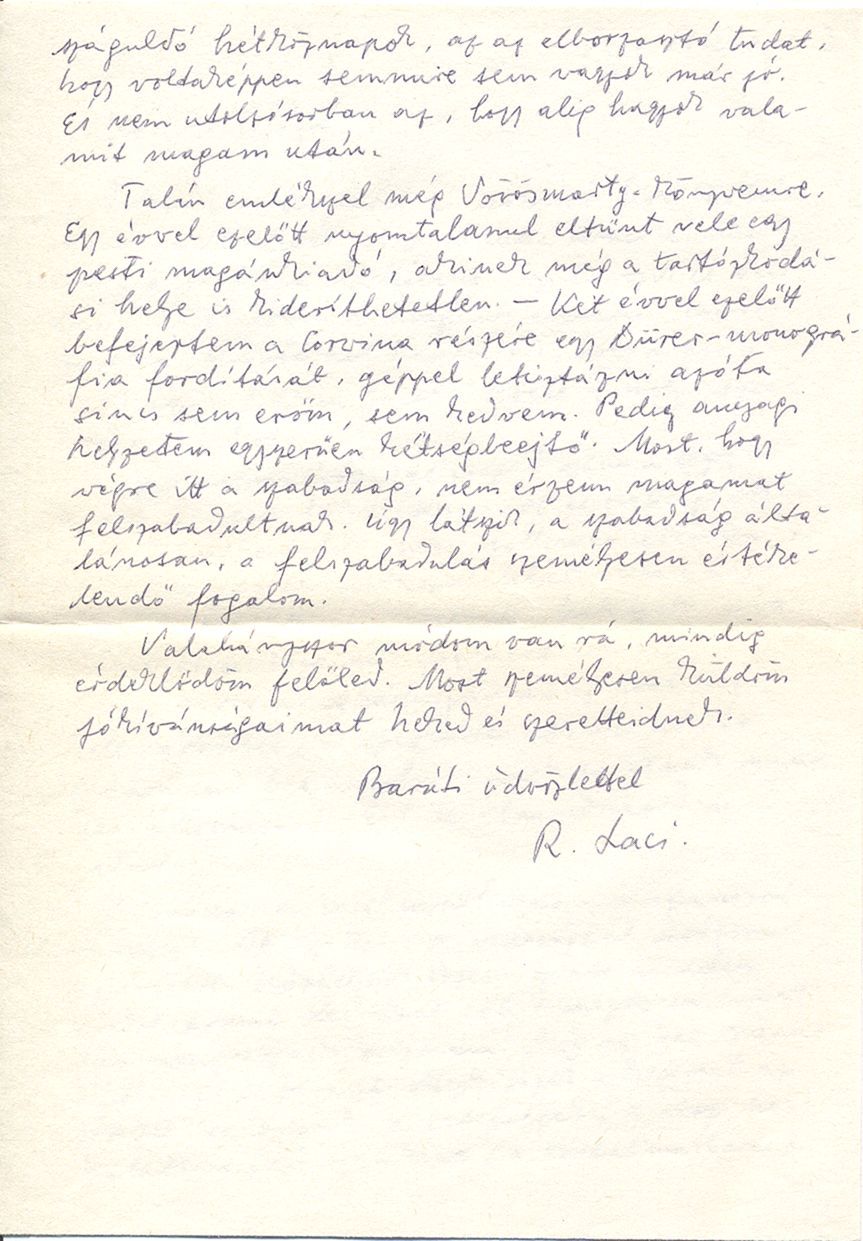 száguldó hétköznapok, az az elborzasztó tudat,
hogy voltaképpen semmire sem vagyok már jó.
És nem utolsósorban az, hogy alig hagyok vala-
mit magam után.
Talán emlékszel még Vörösmarty-könyvemre.
Egy évvel ezelőtt nyomtalanul eltünt vele egy
pesti magánkiadó, akinek még a tartózkodá-
si helye is kideríthetetlen. – Két évvel ezelőtt
befejeztem a Corvina részére egy Dürer-monográ-
fia fordítását, géppel letisztázni azóta
sincs sem erőm, sem kedvem. Pedig anyagi
helyzetem egyszerüen kétségbeejtő. Most, hogy
végre itt a szabadság, nem érzem magamat
felszabadultnak. Úgy látszik, a szabadság álta-
lánosan, a felszabadulás személyesen értéke-
lendő fogalom.
Valahányszor módom van rá, mindig
érdeklődöm felőled. Most személyesen küldöm
jókívánságaimat neked és szeretteidnek.
Baráti üdvözlettel
R. Laci.